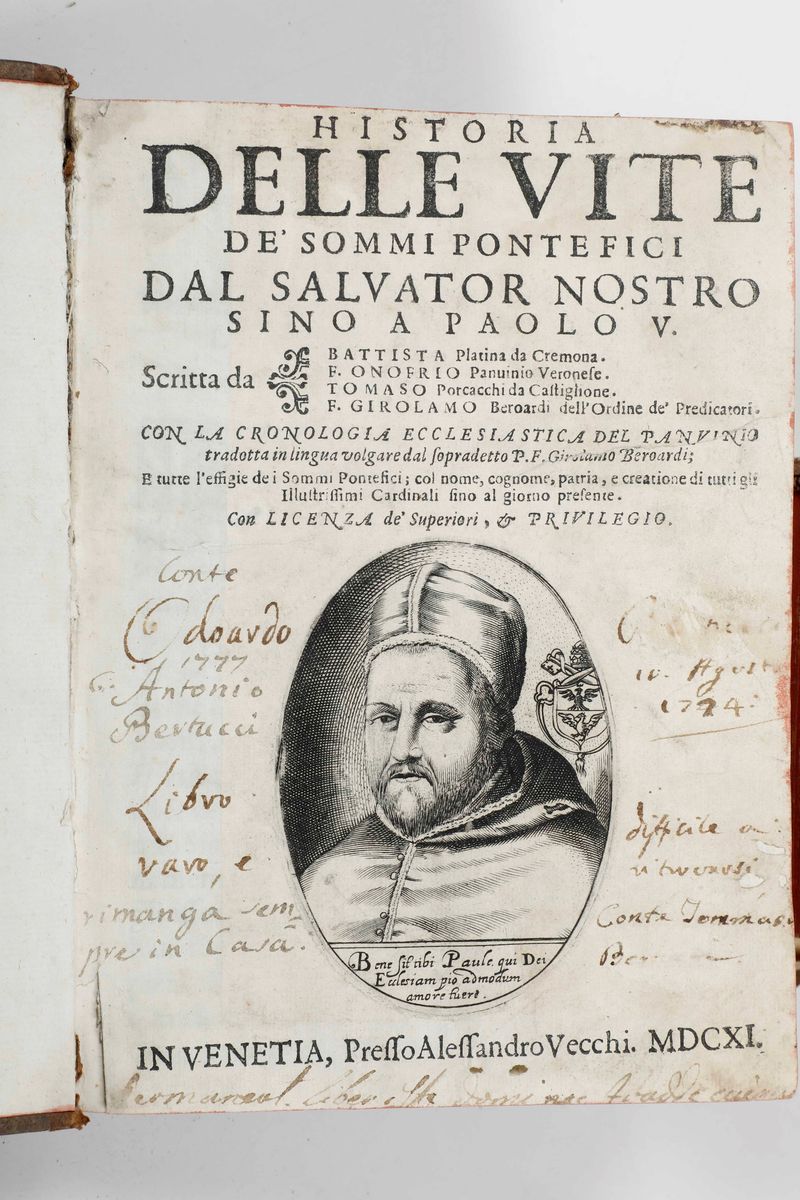 HISTORIA
DELLE VITE
DE' SOMMI PONTEFICI
DAL SALVATOR NOSTRO
SINO A PAOLO V.
Scritta da
BATTISTA Platina da Cremona.
F. ONOFRIO Panuinio Veroneſe.
TOMASO Porcacchi da Caſtiglione.
F. GIROLAMO Beroardi dell'Ordine de' Predicatori.
CON LA CRONOLOGIA ECCLESIASTICA DEL PANVINIO
tradotta in lingua volgare dal ſopradetto P. F. Girolamo Beroardi;
E tutte l'effigie de i Sommi Pontefici; col nome, cognome, patria, e creatione di tutti gli
Illuſtriſſimi Cardinali ſino al giorno preſente.
Con LICENZA de' Superiori, & PRIVILEGIO.
Conte
Odoardo
1777
Antonio
Bertucci
Libro
raro, e
rimanga sem
pre in Casa.
10. Agosto
1794
difficile
Conte Tommaso
Bene ſit tibi Paule qui Dei
Eccleſiam pio admodum
amore
IN VENETIA, Preſſo Aleſſandro Vecchi. MDCXI.
liber iste